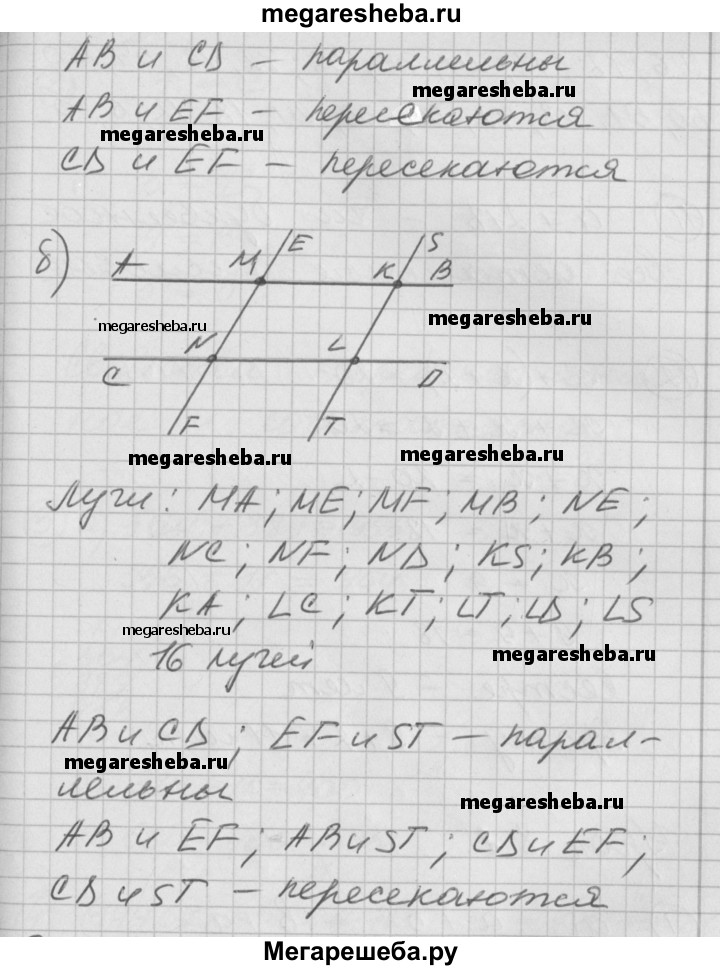 megaresheba.ru
AB и CD – параллельны
megaresheba.ru
AB и EF – пересекаются
megaresheba.ru
CD и EF – пересекаются
б)
E S
A M K B
megaresheba.ru
megaresheba.ru
N L
C D
F T
megaresheba.ru
megaresheba.ru
Лучи: MA; ME; MF; MB; NE;
NC; NF; ND; KS; KB;
KA; LC; KT; LT; LD; LS
megaresheba.ru
16 лучей
megaresheba.ru
AB и CD; EF и ST – парал-
megaresheba.ru
лельны
megaresheba.ru
AB и EF; AB и ST; CD и EF;
CD и ST – пересекаются
Мегарешеба.ру